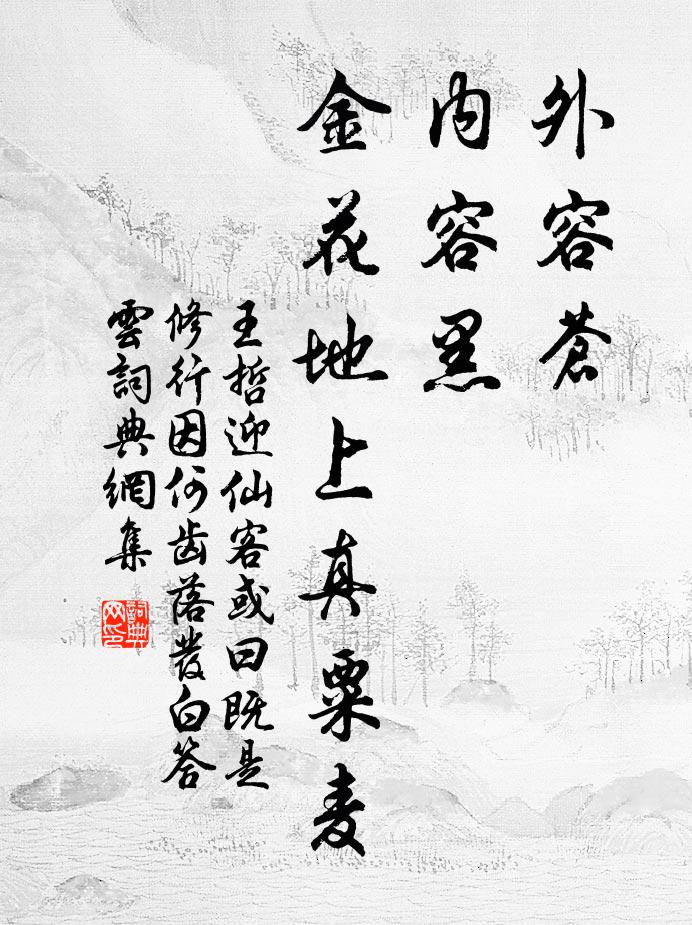 外容蒼
内容黑
金花地上真粟麦
王哲迎仙客或曰既是
修行因何齿落發白答
雲詞典網集
詞典
网印